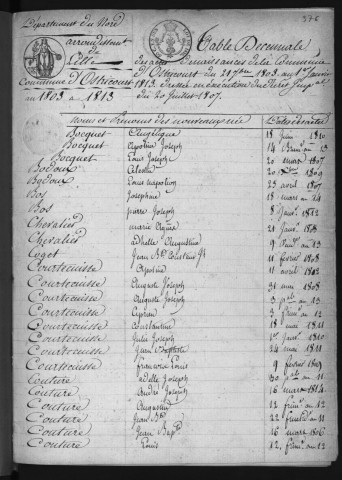 376
Département du Nord
arrondissement de
Lille
Commune d'Ostricourt
an 1803 a 1813
Table Decennale
des actes de naissances de la Commune
d'Ostricourt du 21 7bre 1803 au 1er Janvier
1813. Dressée en exécution du Décret Impal
du 20 Juillet 1807.
Noms et Prénoms des nouveaux nés Dates des actes
Bocquet Angélique 18 Juin 1810
Bocquet Apolline Joseph 14 an 13
Bocquet Louis Joseph 20 mars 1807
Bodoux Celestin 20 1809
Bodoux Louis napoléon 23 avril 1807
Bos Josephine 18 mars an 14
Bos pierre Joseph 8 Janv. 1812
Chevalier marie Agnès 21 Janv. 1808
Chevalier adelle Augustine 9 an 13
Coget Jean Bte Constant 11 février 1808
Courtecuisse Apoline 11 avril 1802
Courtecuisse Auguste Joseph 31 mai 1808
Courtecuisse Auguste Joseph 3 an 13
Courtecuisse Ciprien 3 frim. an 12
Courtecuisse Constantine 18 mai 1811
Courtecuisse Julie Joseph 1er Janv. 1810
Courtecuisse Jean Baptiste 24 mai 1811
Courtecuisse francois Louis 9 février 1809
Couture adelle Joseph 30 an 11
Couture André Joseph 16 mars 1814
Couture Augustin 12 frim. an 12
Couture Jean Bte 22 an 11
Couture Jean Bapte 16 mars 1806
Couture Louis 12 frim. an 12